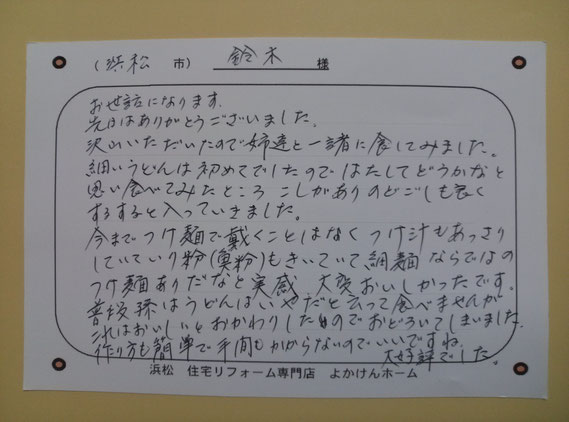 (浜松 市) 鈴木 様
お世話になります。
先日はありがとうございました。
沢山いただいたので姉達と一諸に食してみました。
細いうどんは初めてでしたのではたしてどうかなと
思い食べてみたところ こしがありのどごしも良く
するすると入っていきました。
今までつけ麺で戴くことはなく つけ汁もあっさり
していていり粉(魚粉)もきいていて細麺ならではの
つけ麺ありだなと実感 大変おいしかったです。
普段孫はうどんはいやだと云って食べませんが
これはおいしいとおかわりしたのでおどろいてしまいました。
作り方も簡単で手間もかからないのでいいですね。
大好評でした。
浜松 住宅リフォーム専門店 よかけんホーム